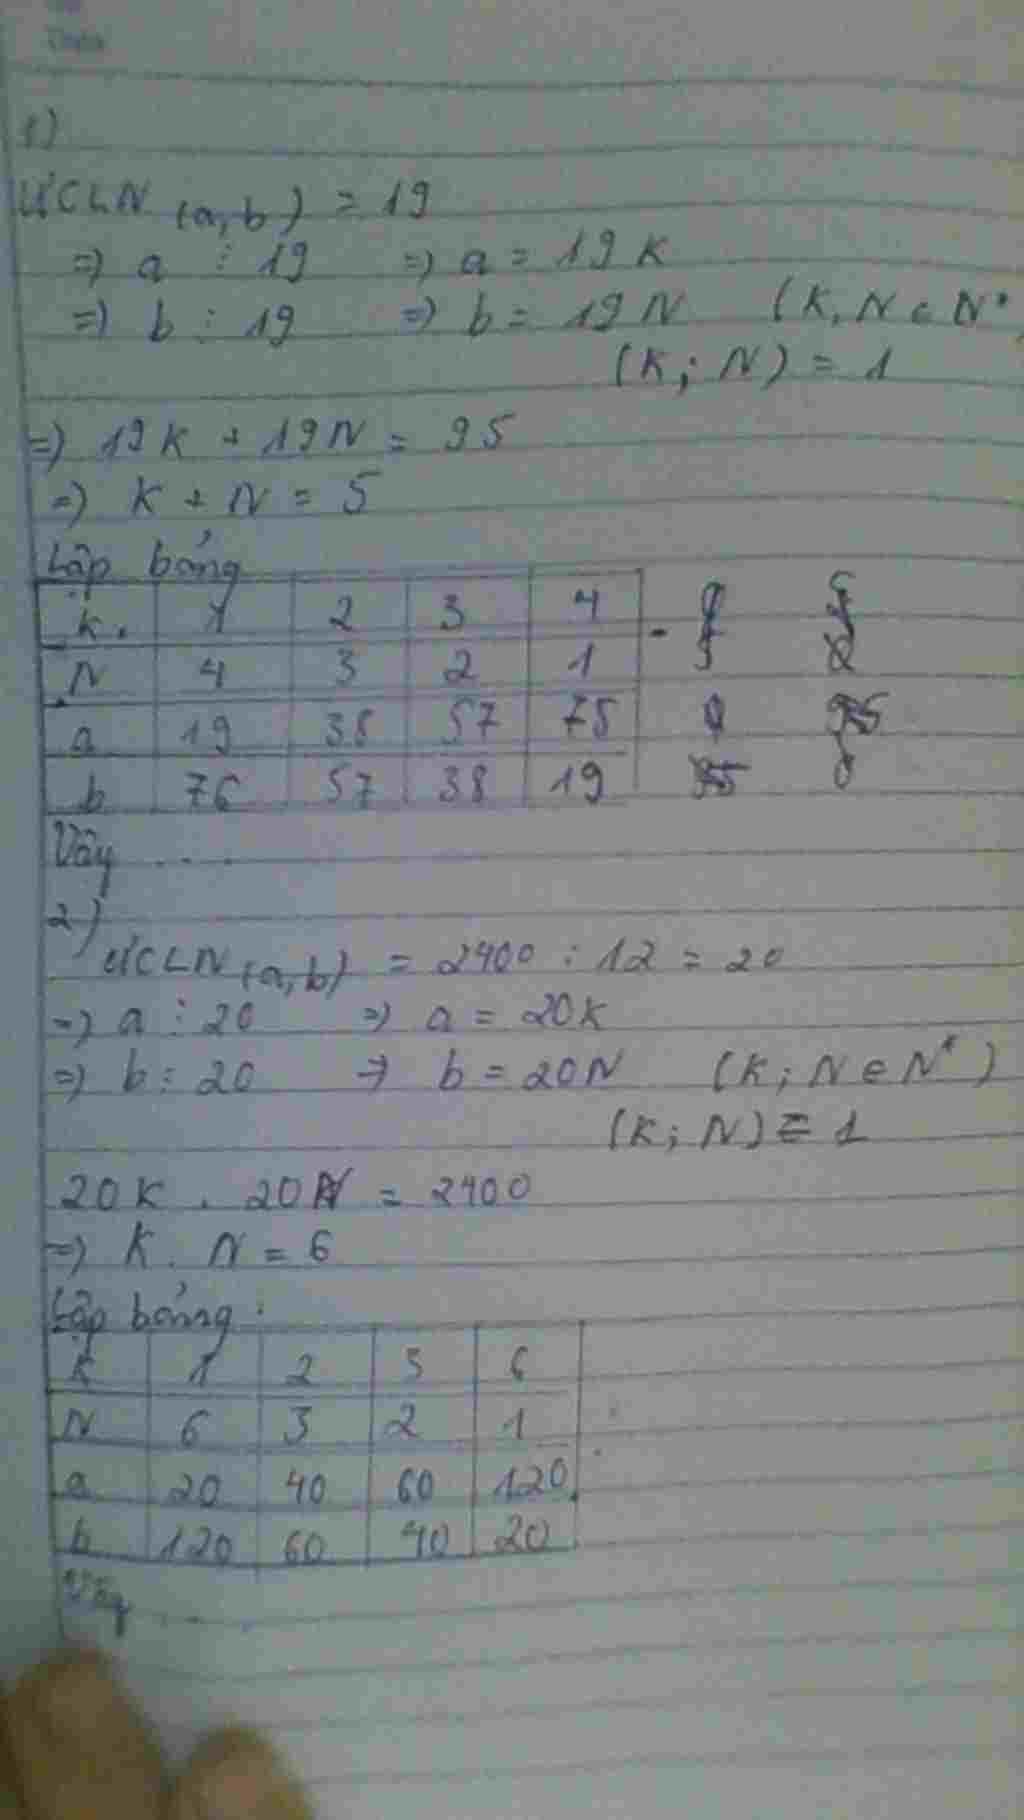 1)
ƯCLN (a,b) = 19
=) a ⋮ 19 =) a = 19K
=) b ⋮ 19 =) b = 19N (K, N ∈ N*
(K; N) = 1
=) 19K + 19N = 95
=) K + N = 5
Lập bảng
K. 1 2 3 4
N 4 3 2 1
a 19 38 57 75
b 76 57 38 19
Vậy ....
2)
ƯCLN (a,b) = 2400 : 12 = 20
=) a ⋮ 20 =) a = 20K
=) b ⋮ 20 => b = 20N (K; N ∈ N*)
(K; N) = 1
20K . 20N = 2400
=) K. N = 6
Lập bảng:
K 1 2 3 6
N 6 3 2 1
a 20 40 60 120
b 120 60 40 20
Vậy ...